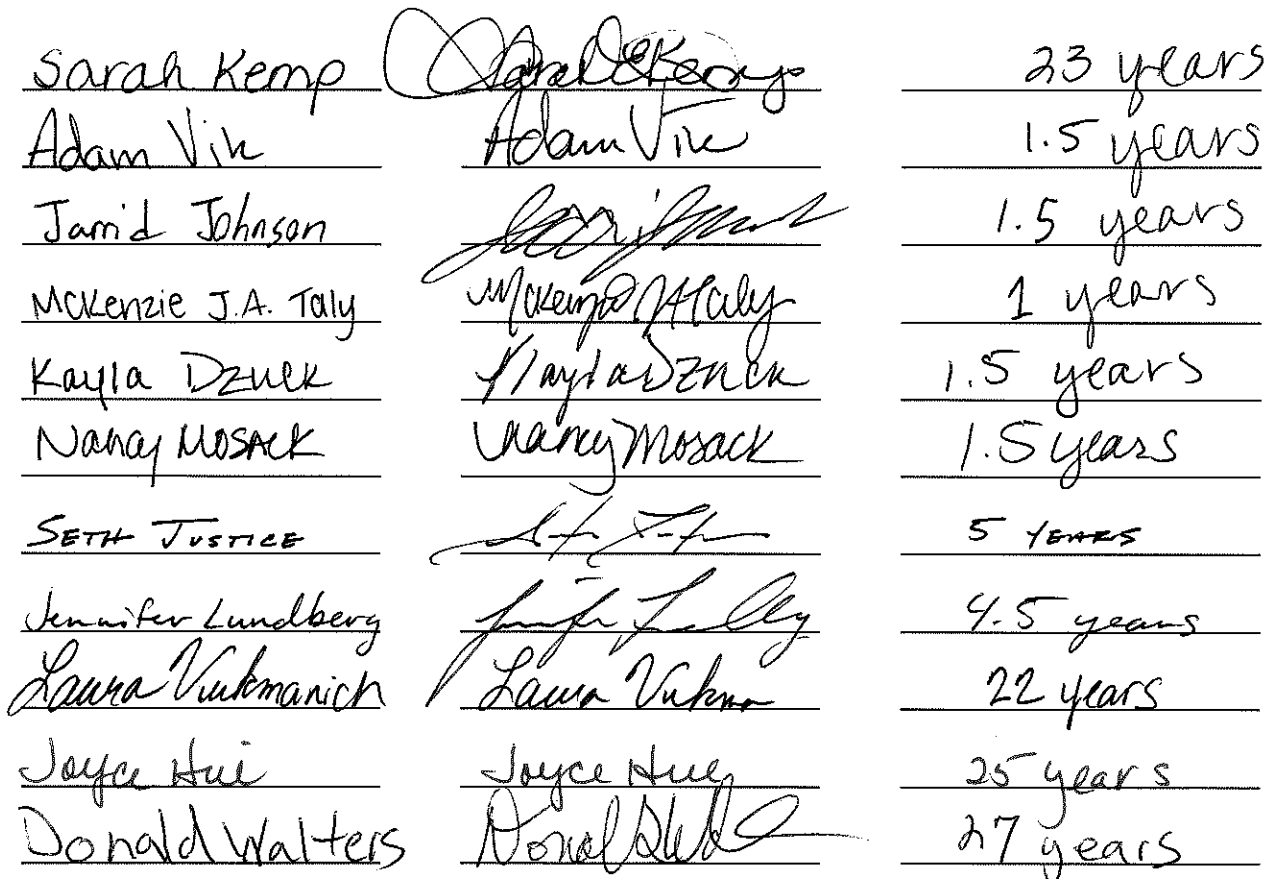 Sarah Kemp Sarah E Kemp 23 years
Adam Vik Adam Vik 1.5 years
Jarrid Johnson 1.5 years
McKenzie J.A. Taly McKenzie JA Taly 1 years
Kayla Dzuck Kayla Dzuck 1.5 years
Nancy Mosack Nancy Mosack 1.5 years
SETH JUSTICE 5 YEARS
Jennifer Lundberg 4.5 years
Laura Vukmanich Laura Vukma 22 years
Joyce Hue Joyce Hue 25 years
Donald Walters Donald 27 years